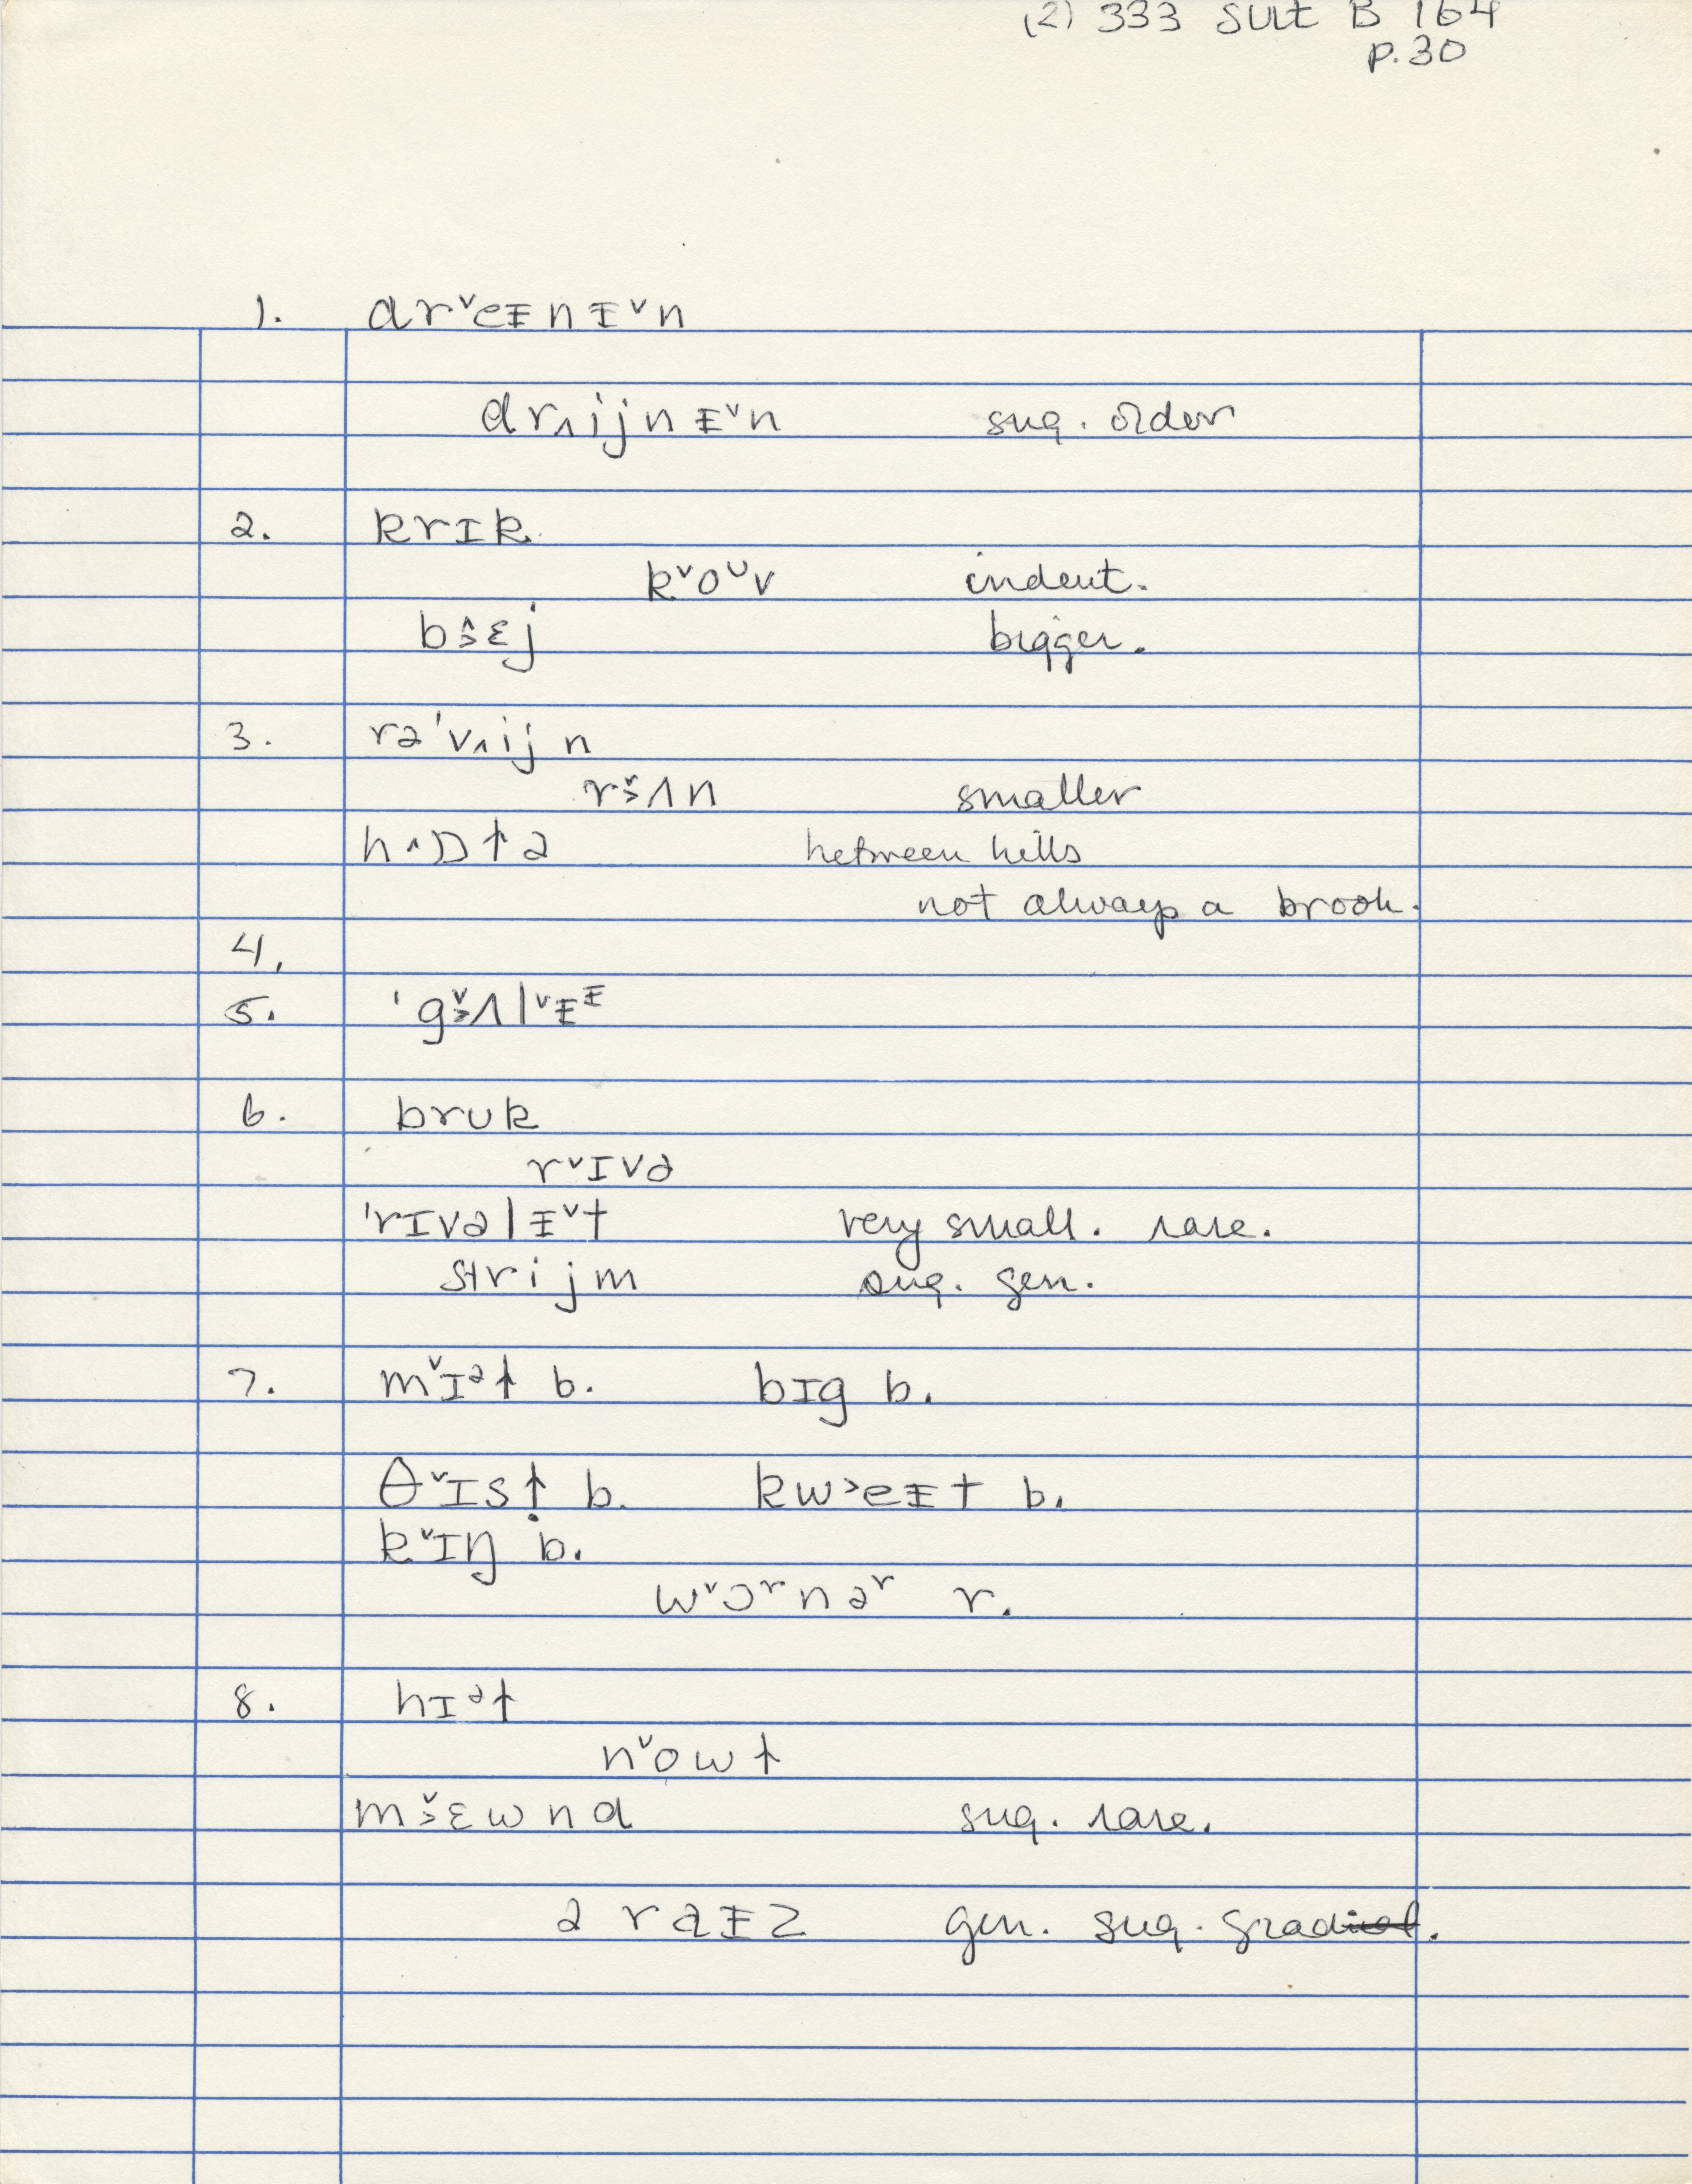 (2) 333 Suit B 164
p.30
1. drˇeᵻnᵻˇn
dr˰ijnᵻˇn sug. older
2. krɪk
kˇoᶸv indent.
b˄˃ɛj bigger.
3. rə'v˰ijn
rˇ˃ʌn smaller
h˄ɒlə between hills
not always a brook.
4.
5. 'gˇ˃ʌlˇᵻᵻ
6. bruk
rˇɪvə
'rɪvəlᵻˇt very small. rare.
strijm sug. gen.
7. mˇɪᵊɫ b. bɪg b.
θˇɪsɫ b. kw˃eᵻt b.
kˇɪŋ b.
wˇɔʳnəʳ r.
8. hɪᵊɫ
nˇowɫ
mˇ˃ɛwnd sug. rare.
ə raᵻz gen. sug. grad